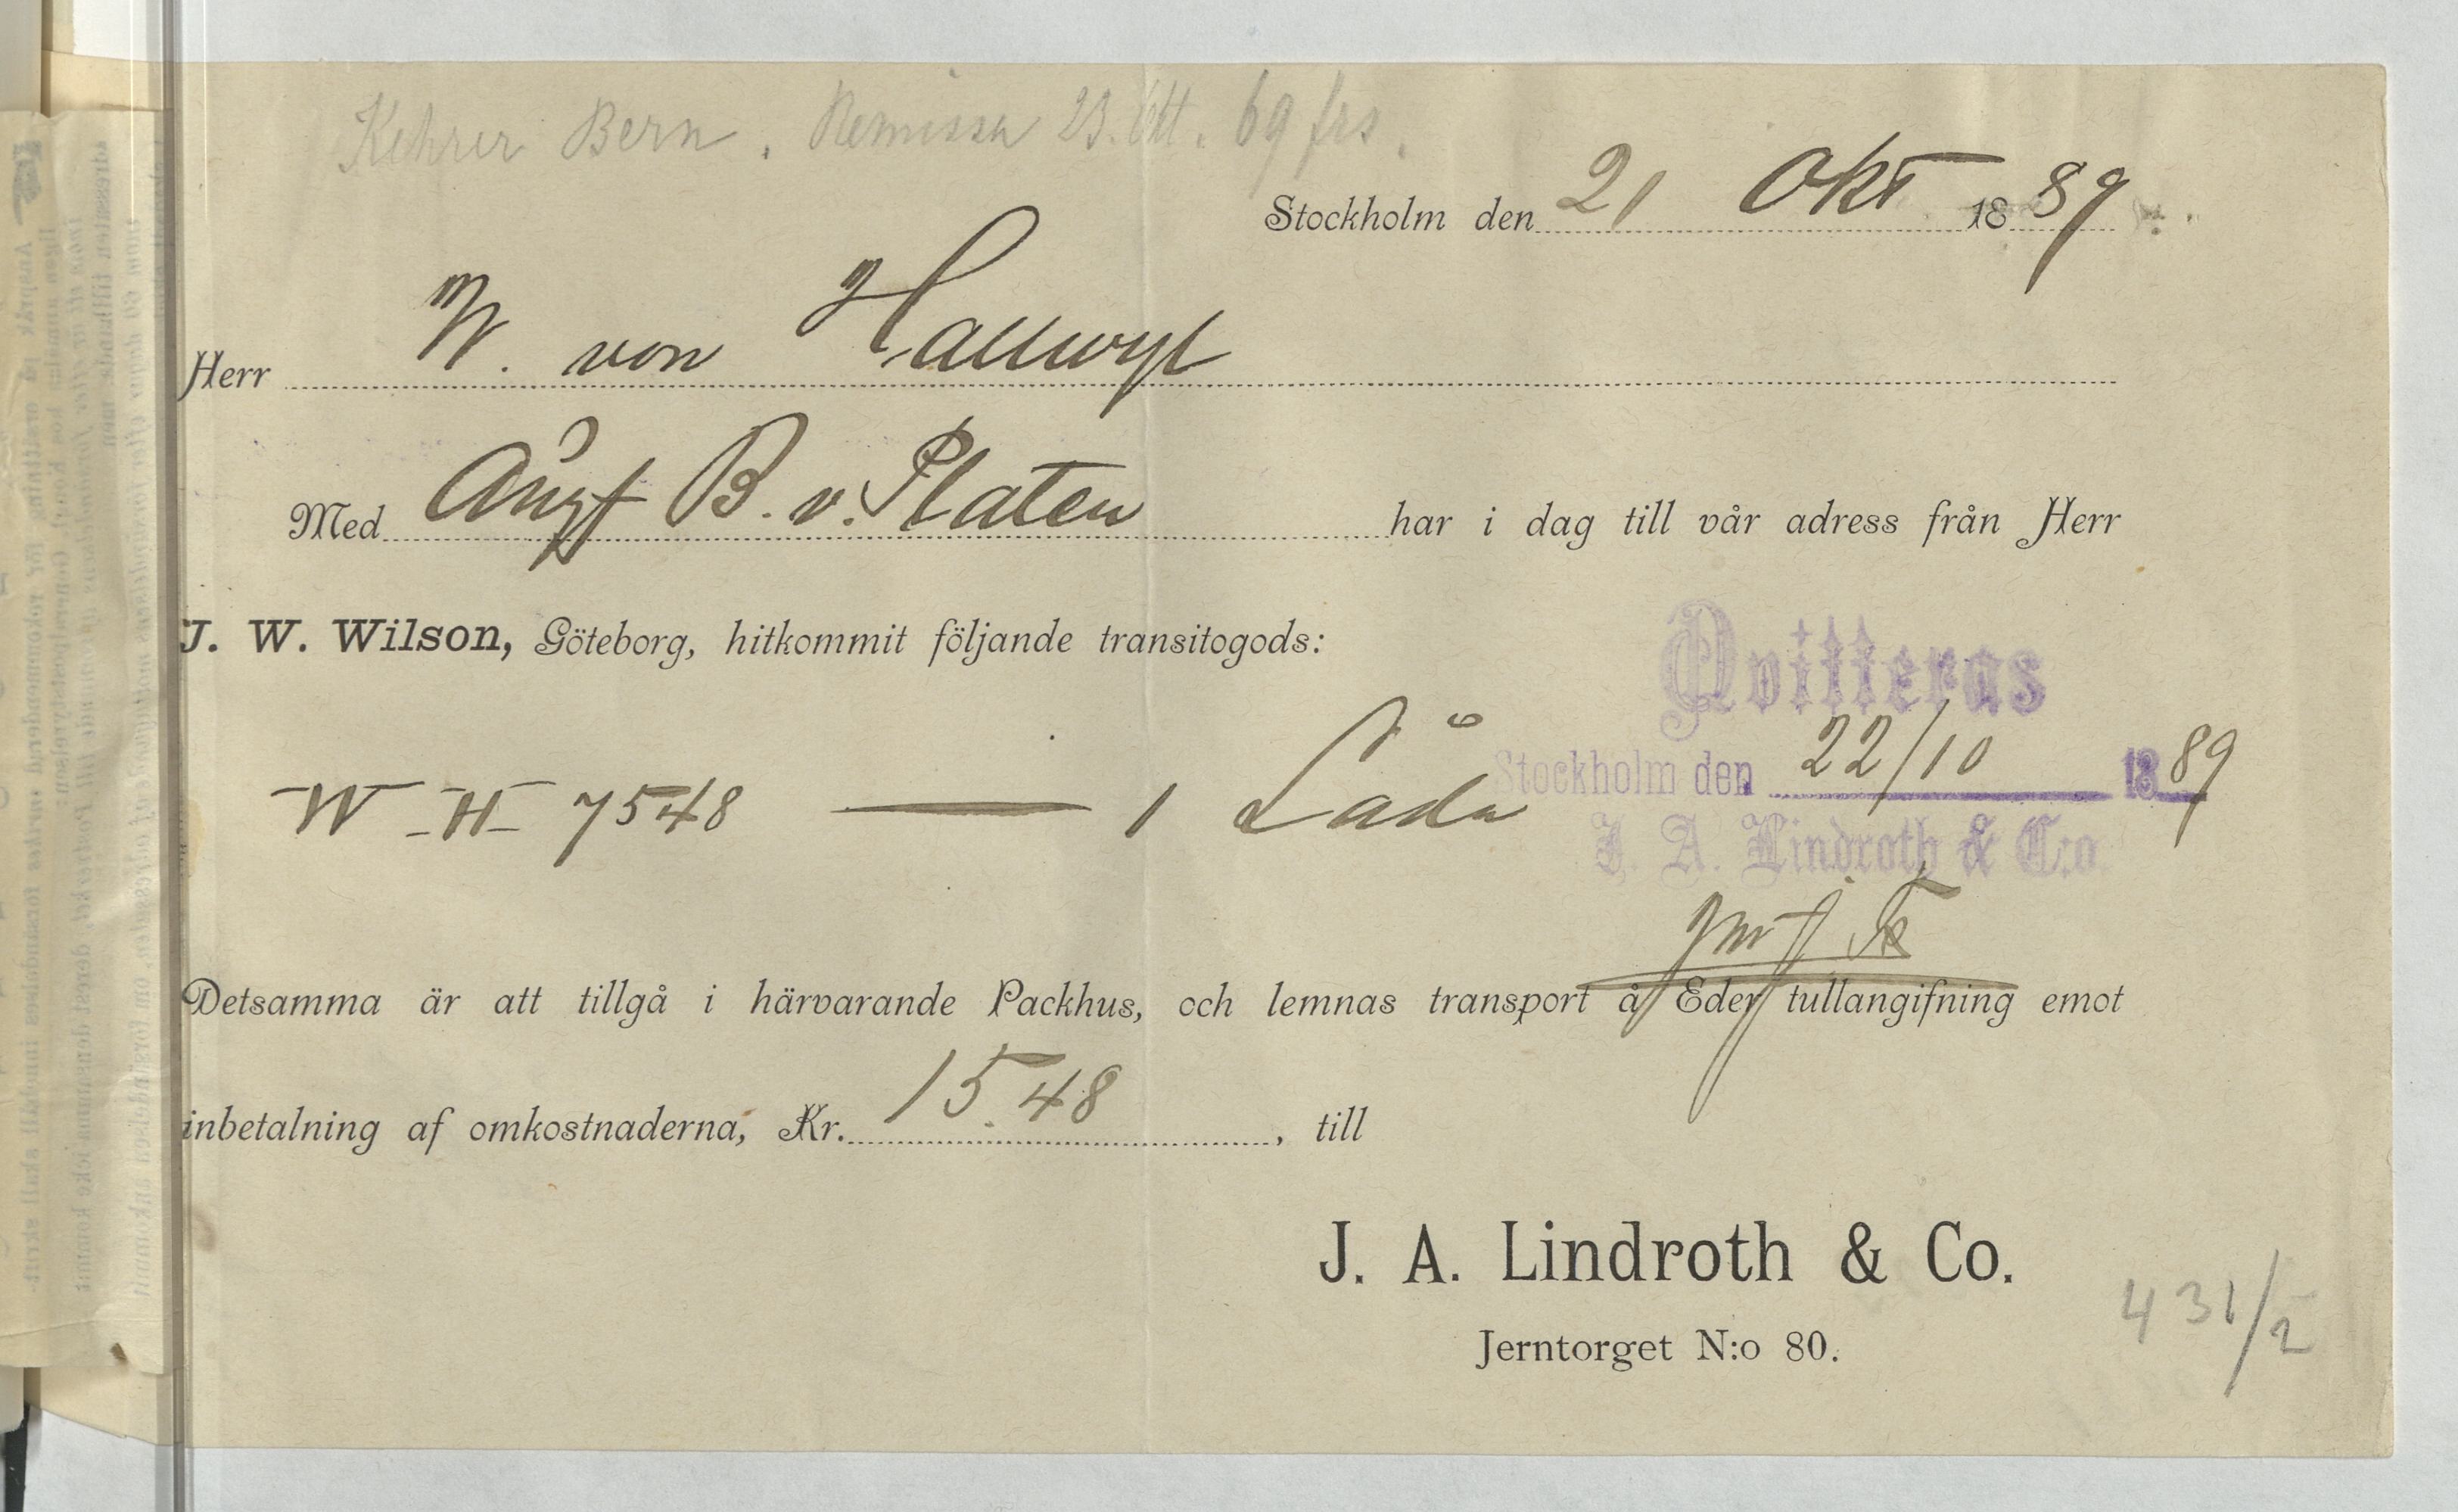 Kehrer Bern. Remissa 23. Okt. 69 frs.
Stockholm den 21 Okt 1889
Herr W. von Hallwyl
Med Ångf B. v. Platen har i dag till vår adress från Herr
J. W. Wilson, Göteborg, hitkommit följande transitogods:
Qvitteras
W H 7548 — 1 Låda
Stockholm den 22/10 1889
J. A. Lindroth & C:o
Detsamma är att tillgå i härvarande Packhus, och lemnas transport å Eder tullangifning emot
inbetalning af omkostnaderna, Kr. 15.48, till
J. A. Lindroth & Co.
Jerntorget N:o 80.
431/2